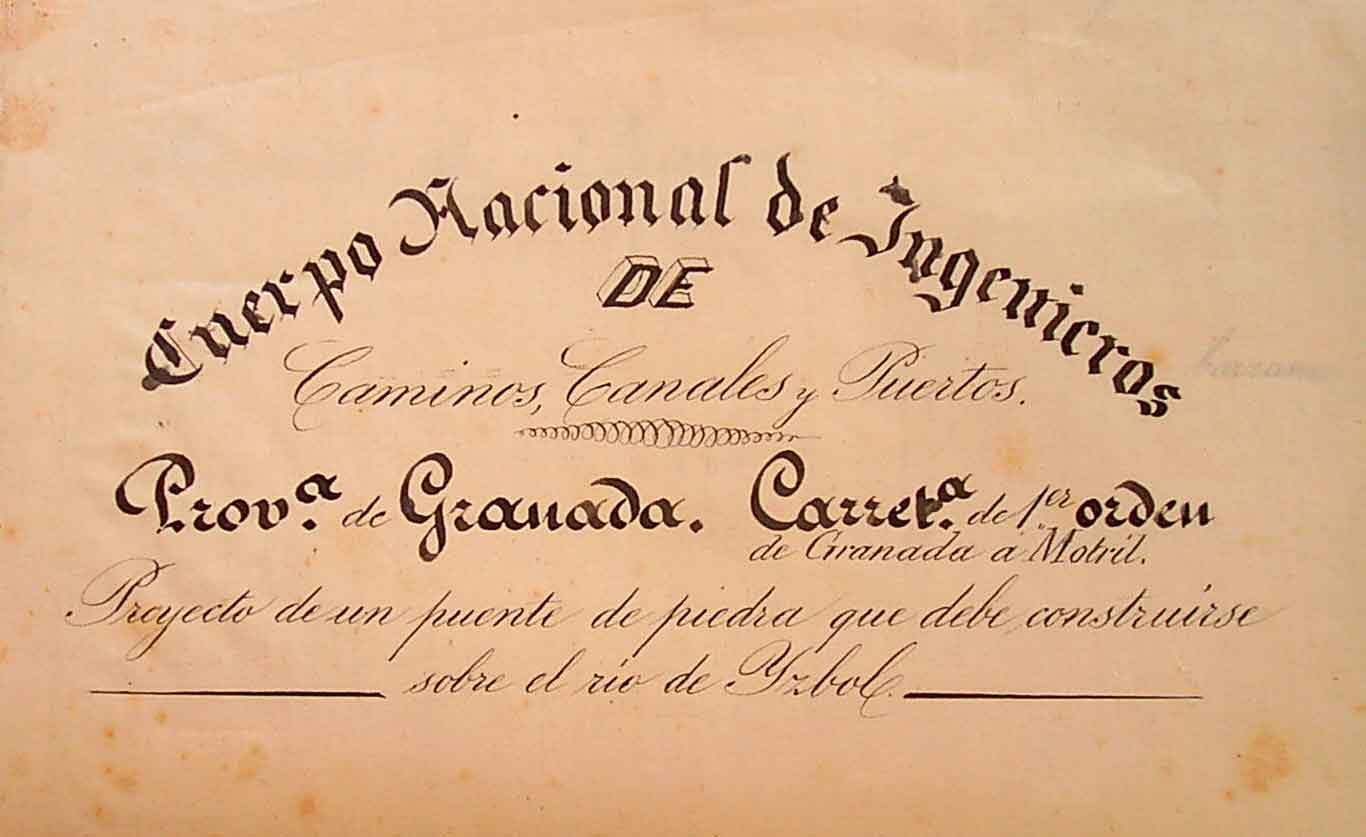 Cuerpo Nacional de Ingenieros
DE
Caminos, Canales y Puertos.
Prov.ª de Granada. Carret.ª de 1er orden
de Granada a Motril.
Proyecto de un puente de piedra que debe construirse
sobre el río de Yzbol.